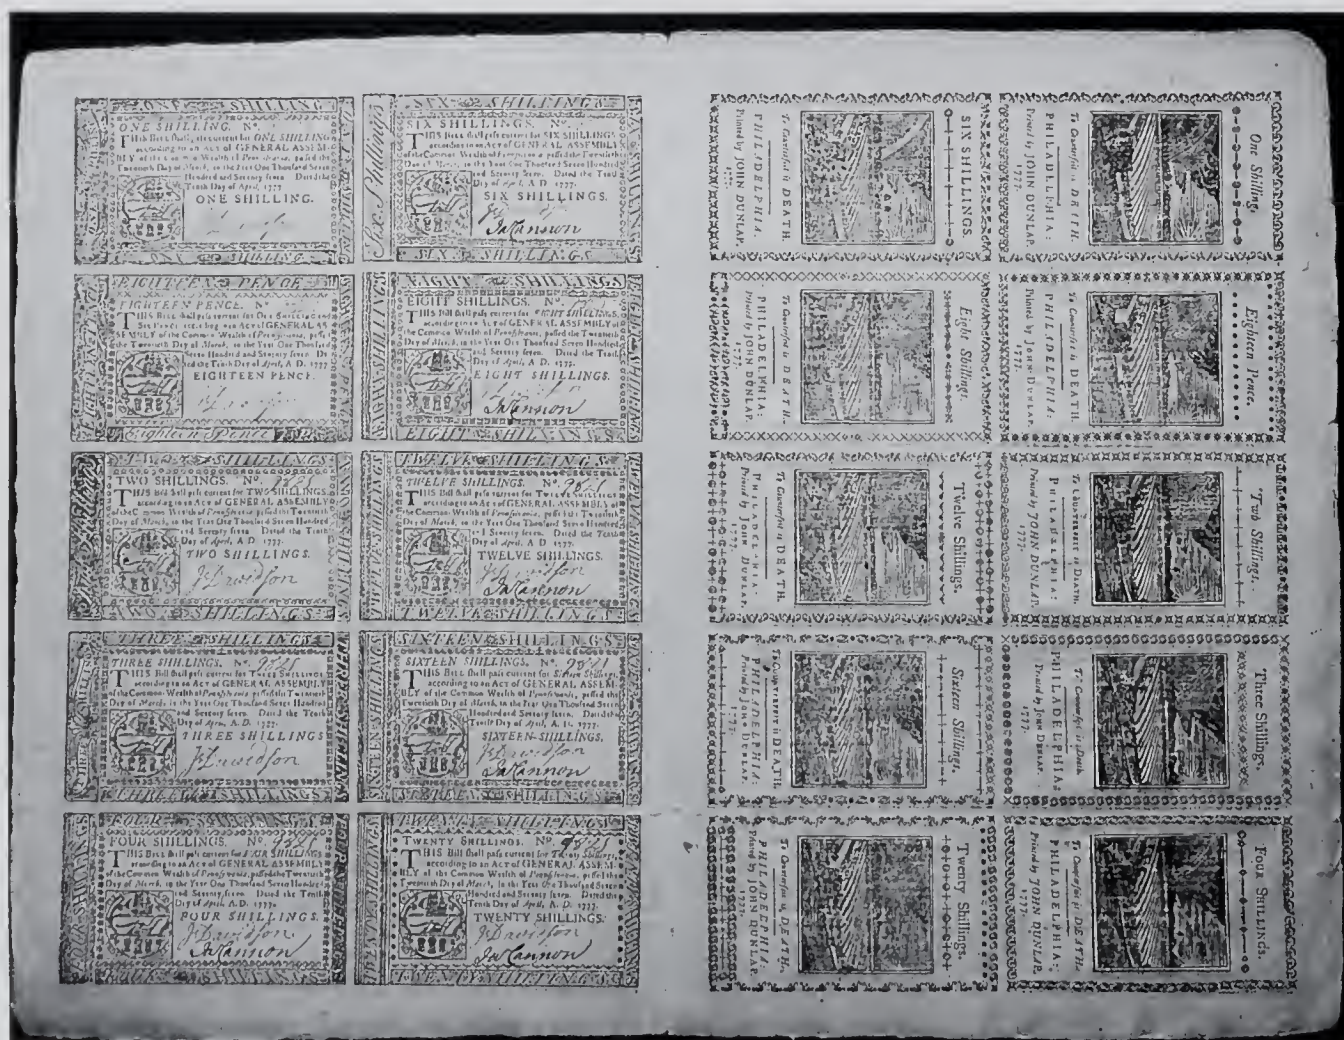 ONE SHILLING
ONE SHILLING. No.
THIS Bill shall pass current for ONE SHILLING
according to an Act of GENERAL ASSEM-
BLY of the Common Wealth of Pennsylvania, passed the
Twentieth Day of March, in the Year One Thousand Seven
Hundred and Seventy seven. Dated the
Tenth Day of April, A.D. 1777
ONE SHILLING.
SIX SHILLINGS
Six Shillings
SIX SHILLINGS. No.
THIS BILL shall pass current for SIX SHILLINGS
according to an Act of GENERAL ASSEMBLY
of the Common Wealth of Pennsylvania passed the Twentieth
Day of March, in the Year One Thousand Seven Hundred
and Seventy seven. Dated the Tenth
Day of April, A. D. 1777.
SIX SHILLINGS.
Ja Cannon
SIX SHILLINGS
EIGHTEEN PENCE
EIGHTEEN PENCE. No.
THIS BILL shall pass current for One SHILLING and
Six Pence according to an Act of GENERAL AS-
SEMBLY, of the Common Wealth of Pennsylvania, passed
the Twentieth Day of March, in the Year One Thousand
Seven Hundred and Seventy seven. Da-
ted the Tenth Day of April, A.D. 1777
EIGHTEEN PENCE.
Eighteen Pence
EIGHT SHILLINGS
EIGHT SHILLINGS. No.
THIS Bill shall pass current for EIGHT SHILLINGS,
according to an Act of GENERAL ASSEMBLY of
the Common Wealth of Pennsylvania, passed the Twentieth
Day of March, in the Year One Thousand Seven Hundred
and Seventy seven. Dated the Tenth
Day of April, A. D. 1777.
EIGHT SHILLINGS.
Ja Cannon
EIGHT SHILLINGS
TWO SHILLINGS
TWO SHILLINGS. No. 9825
THIS Bill shall pass current for TWO SHILLINGS,
according to an Act of GENERAL ASSEMBLY
of the Common Wealth of Pennsylvania passed the Twentieth
Day of March, in the Year One Thousand Seven Hundred
and Seventy seven. Dated the Tenth
Day of April, A D 1777.
TWO SHILLINGS.
J. Davidson
TWO SHILLINGS
TWELVE SHILLINGS
TWELVE SHILLINGS. No. 9825
THIS Bill shall pass current for TWELVE SHILLINGS,
according to an Act of GENERAL ASSEMBLY of
the Common Wealth of Pennsylvania, passed the Twentieth
Day of March, in the Year One Thousand Seven Hundred
and Seventy seven. Dated the Tenth
Day of April, A. D. 1777.
TWELVE SHILLINGS.
J. Davidson
Ja Cannon
TWELVE SHILLINGS
THREE SHILLINGS
THREE SHILLINGS. No. 9825
THIS BILL shall pass current for THREE SHILLINGS
according to an Act of GENERAL ASSEMBLY
of the Common Wealth of Pennsylvania passed the Twentieth
Day of March, in the Year One Thousand Seven Hundred
and Seventy seven. Dated the Tenth
Day of April, A. D. 1777.
THREE SHILLINGS
J. Davidson
THREE SHILLINGS
SIXTEEN SHILLINGS
SIXTEEN SHILLINGS. No.
THIS BILL shall pass current for Sixteen Shillings,
according to an Act of GENERAL ASSEM-
BLY of the Common Wealth of Pennsylvania, passed the
Twentieth Day of March, in the Year One Thousand Seven
Hundred and Seventy seven. Dated the
Tenth Day of April, A. D. 1777.
SIXTEEN SHILLINGS.
J. Davidson
Ja Cannon
SIXTEEN SHILLINGS
FOUR SHILLINGS
FOUR SHILLINGS. No. 9825
THIS BILL shall pass current for FOUR SHILLINGS
according to an Act of GENERAL ASSEMBLY
of the Common Wealth of Pennsylvania, passed the Twentieth
Day of March, in the Year One Thousand Seven Hundred
and Seventy seven. Dated the Tenth
Day of April, A.D. 1777.
FOUR SHILLINGS.
J. Davidson
Ja Cannon
TWENTY SHILLINGS
TWENTY SHILLINGS. No. 9825
THIS Bill shall pass current for Twenty Shillings,
according to an Act of GENERAL ASSEM-
BLY of the Common Wealth of Pennsylvania, passed the
Twentieth Day of March, in the Year One Thousand Seven
Hundred and Seventy seven. Dated the
Tenth Day of April, A. D. 1777.
TWENTY SHILLINGS.
J. Davidson
Ja Cannon
TWENTY SHILLINGS
SIX SHILLINGS.
To Counterfeit is DEATH
PHILADELPHIA:
Printed by JOHN DUNLAP.
1777.
One Shilling.
To Counterfeit is DEATH.
PHILADELPHIA:
Printed by JOHN DUNLAP.
1777.
Eight Shillings.
To Counterfeit is DEATH.
PHILADELPHIA:
Printed by JOHN DUNLAP.
1777.
Eighteen Pence.
To Counterfeit is DEATH.
PHILADELPHIA:
Printed by JOHN DUNLAP.
1777.
Twelve Shillings.
To Counterfeit is DEATH.
PHILADELPHIA:
Printed by JOHN DUNLAP.
1777.
Two Shillings.
To COUNTERFEIT is DEATH.
PHILADELPHIA:
Printed by JOHN DUNLAP.
1777.
Sixteen Shillings.
To COUNTERFEIT is DEATH.
PHILADELPHIA:
Printed by JOHN DUNLAP.
1777.
Three Shillings.
To Counterfeit is Death
PHILADELPHIA:
Printed by JOHN DUNLAP.
1777.
Twenty Shillings.
To Counterfeit is DEATH.
PHILADELPHIA:
Printed by JOHN DUNLAP.
1777.
FOUR SHILLINGS.
To Counterfeit is DEATH.
PHILADELPHIA:
Printed by JOHN DUNLAP.
1777.